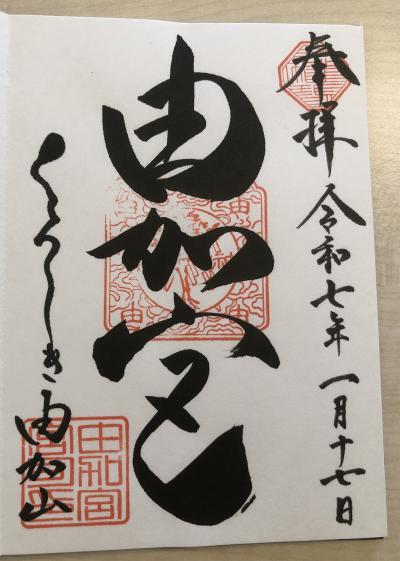 奉拝 令和七年 一月十七日
由加宮
くらしき 由加山
由和宮